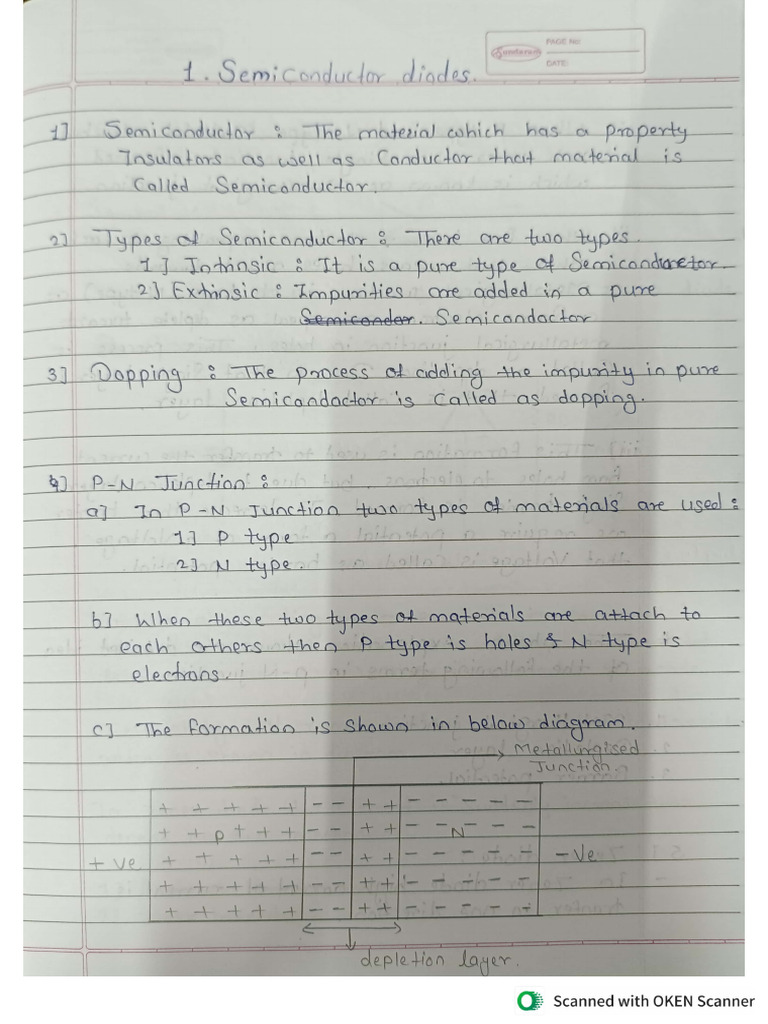 Sundaram
PAGE NO:
DATE:
1. Semiconductor diodes.
1] Semiconductor : The material which has a property
Insulators as well as Conductor that material is
Called Semiconductor.
2] Types of Semiconductor : There are two types.
1] Intrinsic : It is a pure type of Semiconductor
2] Extrinsic : Impurities are added in a pure
Semiconder. Semicondactor
3] Dopping : The process of adding the impurity in pure
Semicondactor is called as dopping.
4] P-N Junction :
a] In P-N Junction two types of materials are used :
1] P type
2] N type.
b] When these two types of materials are attach to
each others then P type is holes & N type is
electrons.
c] The formation is shown in below diagram.
Metallurgised
Junction.
+ + + + + - - + + - - - - -
+ + P + + + - - + + - - N - - -
+ ve + + + + + - - + + - - - - - - ve
+ + + + + - - + + - - - - -
+ + + + + - - + + - - - - -
depletion layer.
Scanned with OKEN Scanner